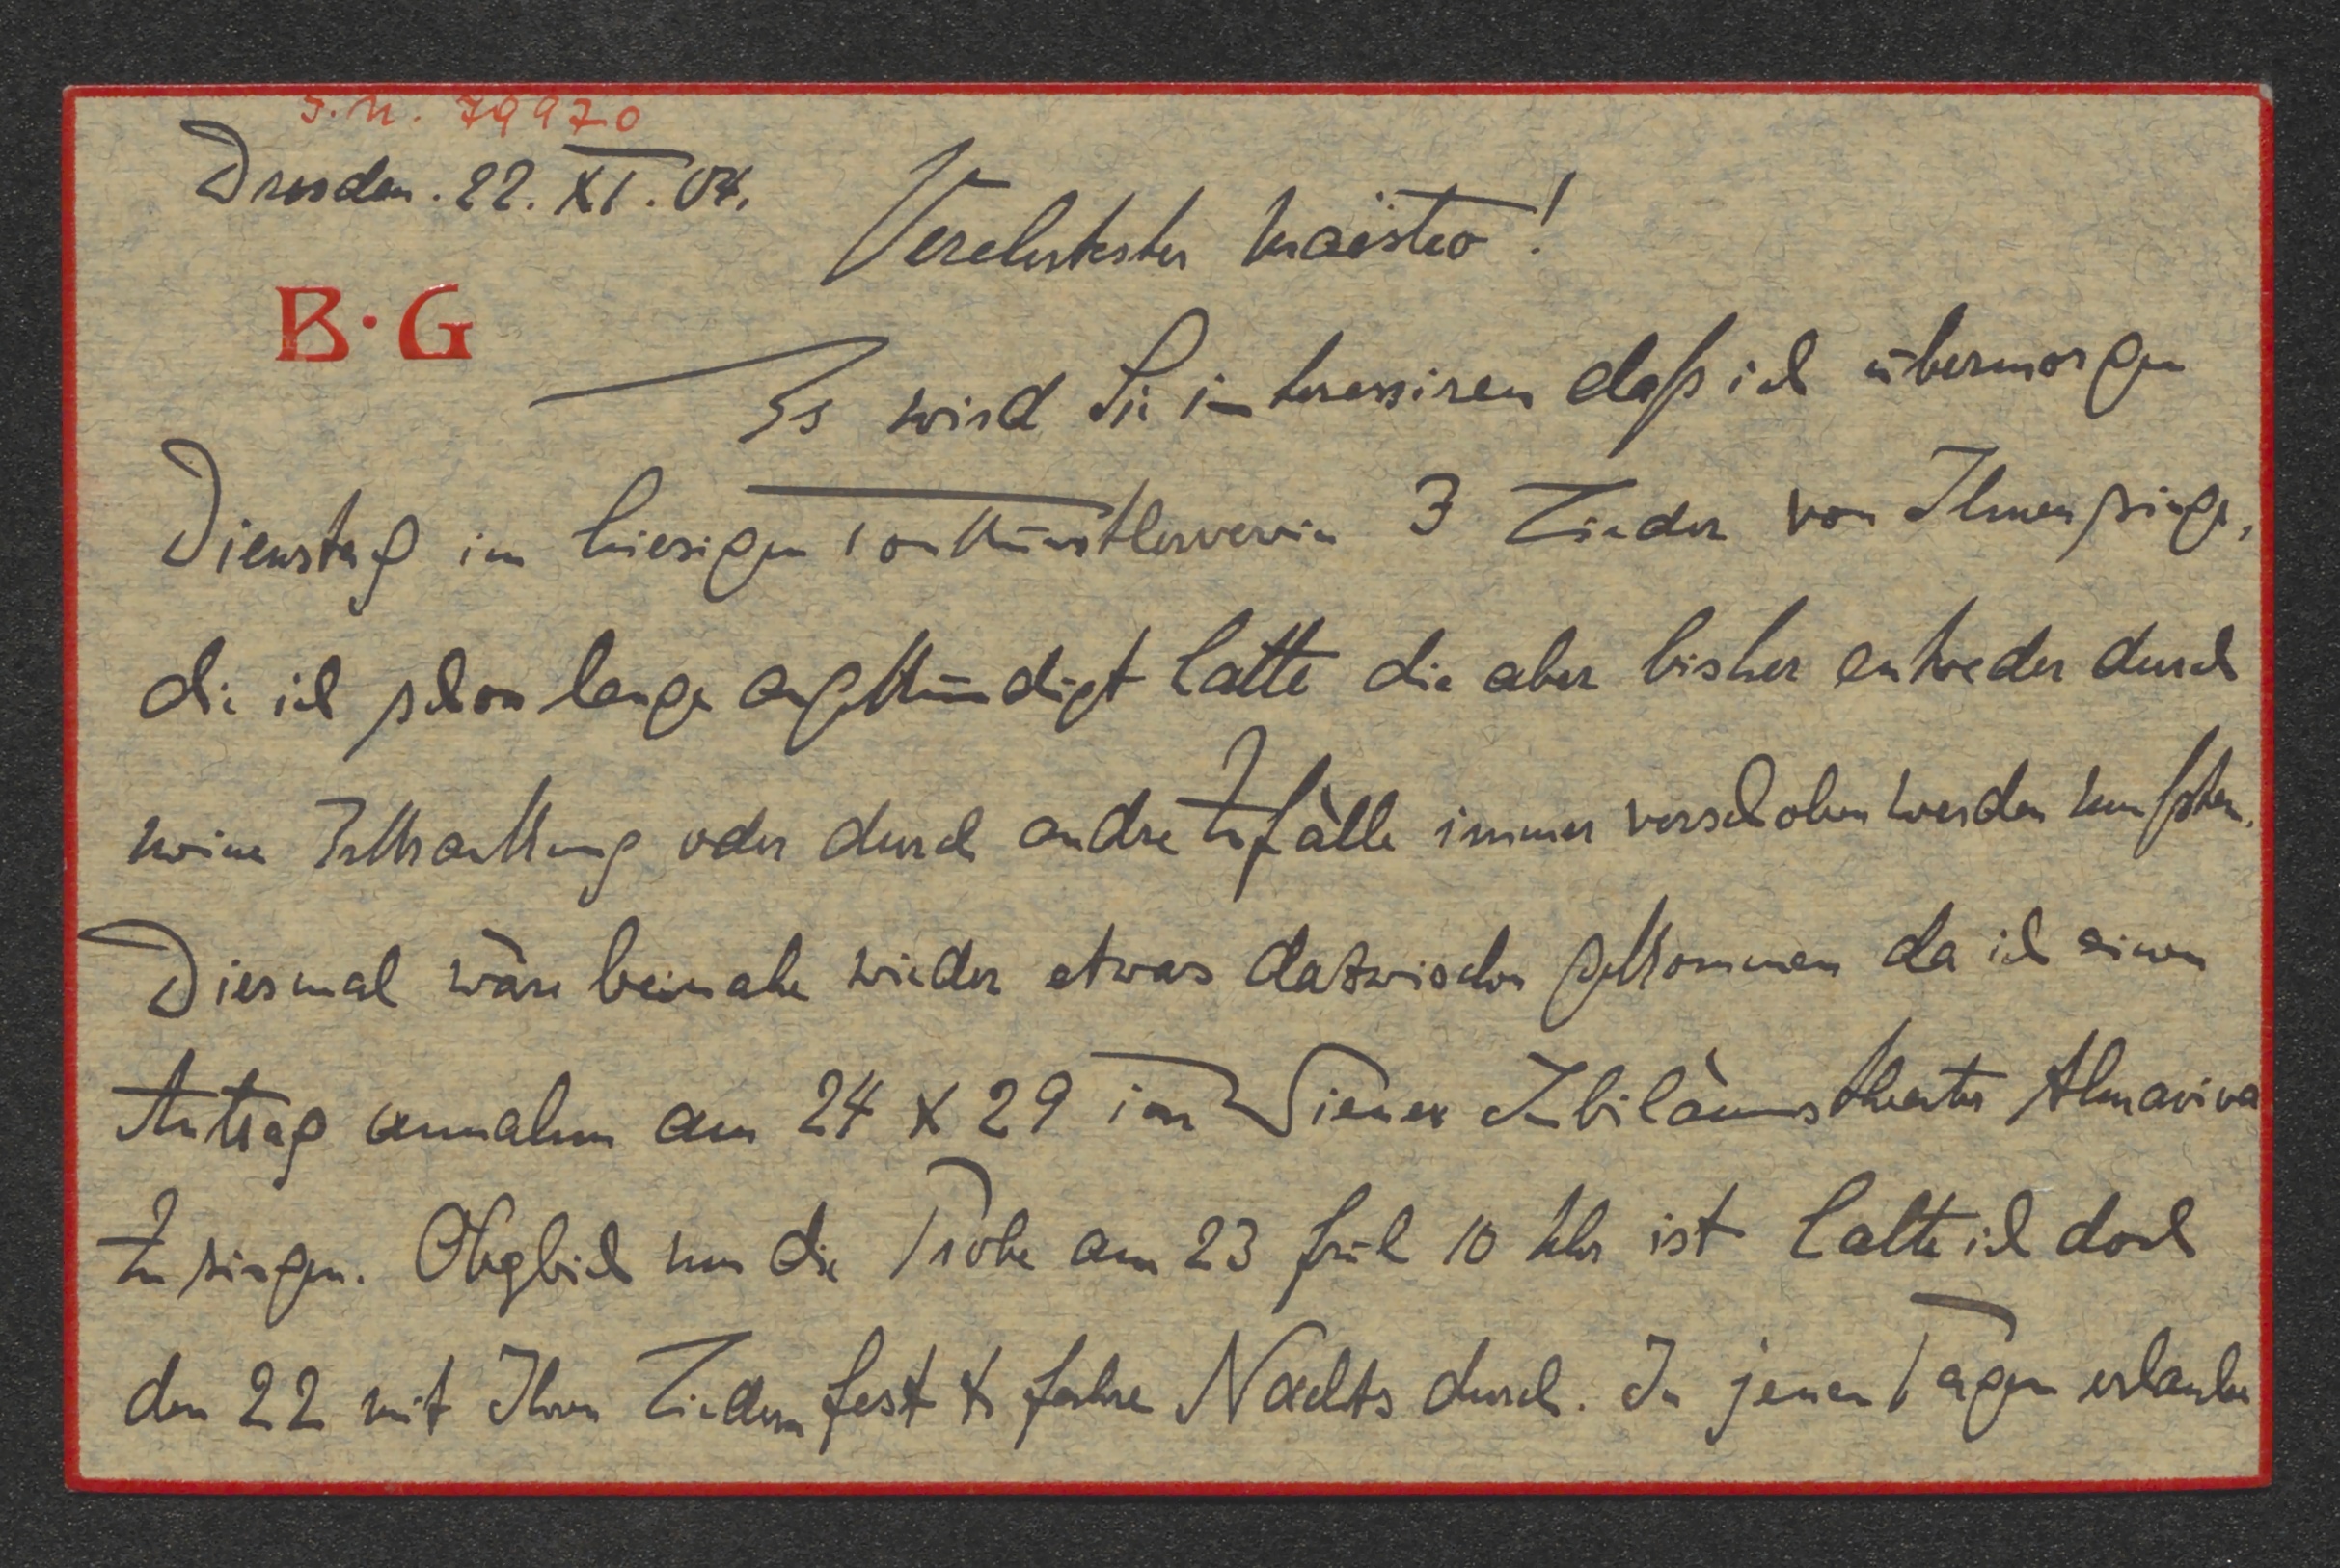 J.N. 79970
Dresden. 22. XI. 04.
Verehrtester Maëstro!
B·G
Es wird Sie interessiren daß ich übermorgen
Dienstag im hiesigen Tonkünstlerverein 3 Lieder von Ihnen singe,
die ich schon lange angekündigt hatte die aber bisher entweder durch
meine Erkrankung oder durch andre Zufälle immer verschoben werden mußten.
Diesmal wäre beinahe wieder etwas dazwischen gekommen da ich einen
Antrag annahm am 24 & 29 im Wiener Jubiläumstheater Almaviva
zu singen. Obgleich nun die Probe am 23 früh 10 Uhr ist halte ich doch
den 22 mit Ihren Liedern fest & fahre Nachts durch. In jenen Tagen erlaube